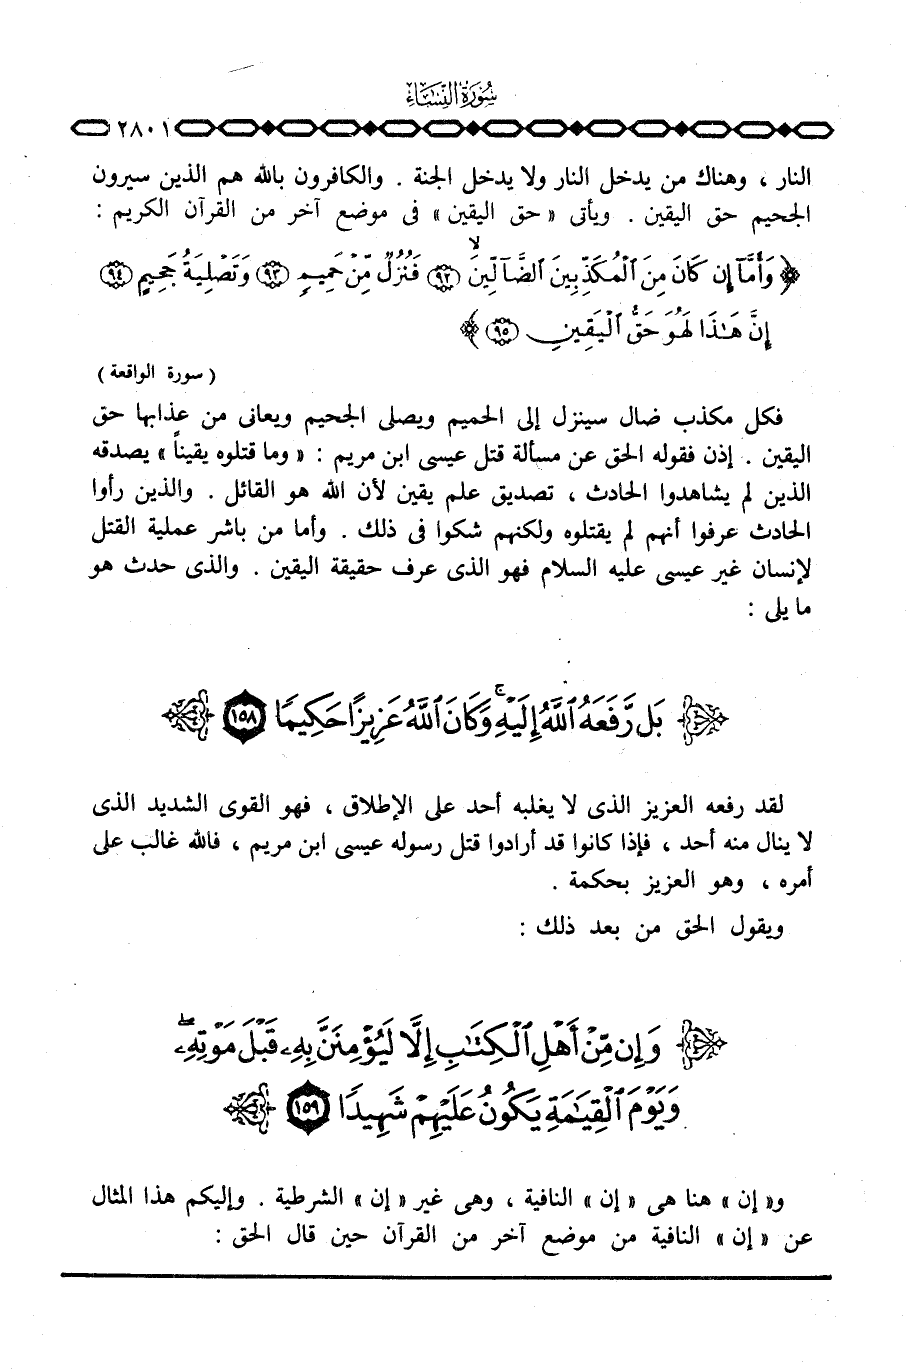 سورة النساء
٢٨٠١
النار ، وهناك من يدخل النار ولا يدخل الجنة . والكافرون بالله هم الذين سيرون
الجحيم حق اليقين . ويأتى « حق اليقين » فى موضع آخر من القرآن الكريم :
﴿ وَأَمَّآ إِن كَانَ مِنَ ٱلْمُكَذِّبِينَ ٱلضَّآلِّينَ ﴿٩٢﴾ فَنُزُلٌ مِّنْ حَمِيمٍ ﴿٩٣﴾ وَتَصْلِيَةُ جَحِيمٍ ﴿٩٤﴾
إِنَّ هَـٰذَا لَهُوَ حَقُّ ٱلْيَقِينِ ﴿٩٥﴾ ﴾
( سورة الواقعة )
فكل مكذب ضال سينزل إلى الحميم ويصلى الجحيم ويعانى من عذابها حق
اليقين . إذن فقوله الحق عن مسألة قتل عيسى ابن مريم : « وما قتلوه يقيناً » يصدقه
الذين لم يشاهدوا الحادث ، تصديق علم يقين لأن الله هو القائل . والذين رأوا
الحادث عرفوا أنهم لم يقتلوه ولكنهم شكوا فى ذلك . وأما من باشر عملية القتل
لإنسان غير عيسى عليه السلام فهو الذى عرف حقيقة اليقين . والذى حدث هو
ما يلى :
بَل رَّفَعَهُ ٱللَّهُ إِلَيْهِ ۚ وَكَانَ ٱللَّهُ عَزِيزًا حَكِيمًا ﴿١٥٨﴾
لقد رفعه العزيز الذى لا يغلبه أحد على الإطلاق ، فهو القوى الشديد الذى
لا ينال منه أحد ، فإذا كانوا قد أرادوا قتل رسوله عيسى ابن مريم ، فالله غالب على
أمره ، وهو العزيز بحكمة .
ويقول الحق من بعد ذلك :
وَإِن مِّنْ أَهْلِ ٱلْكِتَـٰبِ إِلَّا لَيُؤْمِنَنَّ بِهِۦ قَبْلَ مَوْتِهِۦ ۖ
وَيَوْمَ ٱلْقِيَـٰمَةِ يَكُونُ عَلَيْهِمْ شَهِيدًا ﴿١٥٩﴾
و« إن » هنا هى « إن » النافية ، وهى غير « إن » الشرطية . وإليكم هذا المثال
عن « إن » النافية من موضع آخر من القرآن حين قال الحق :